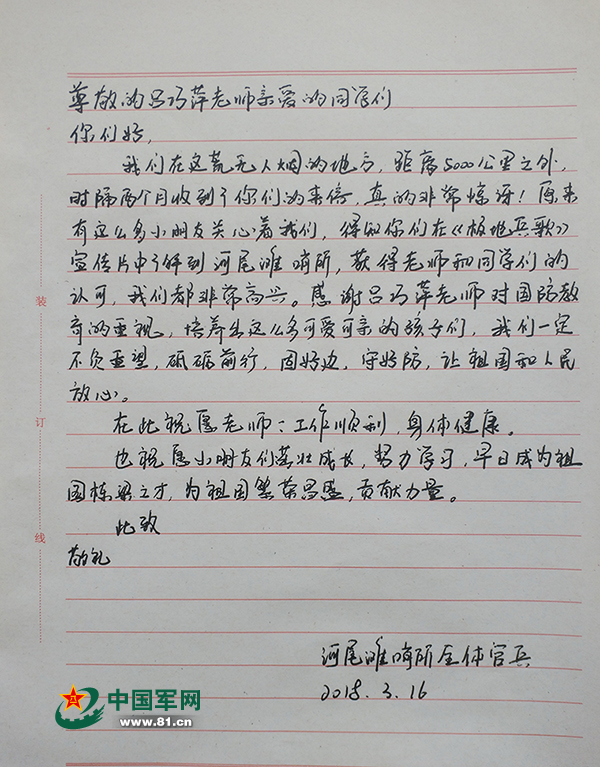 尊敬的吕巧萍老师亲爱的同学们
你们好,
我们在这荒无人烟的地方,距离5000公里之外,
时隔两个月收到了你们的来信,真的非常惊讶!原来
有这么多小朋友关心着我们,得知你们在《极地兵歌》
宣传片中了解到河尾滩哨所,获得老师和同学们的
认可,我们都非常高兴。感谢吕巧萍老师对国防教
育的重视,培养出这么多可爱可亲的孩子们,我们一定
不负重望,砥砺前行,固好边,守好防,让祖国和人民
放心。
在此祝愿老师:工作顺利,身体健康。
也祝愿小朋友们茁壮成长,努力学习,早日成为祖
国栋梁之才,为祖国繁荣昌盛,贡献力量。
此致
敬礼
河尾滩哨所全体官兵
2018.3.16
装
订
线
中国军网
www.81.cn